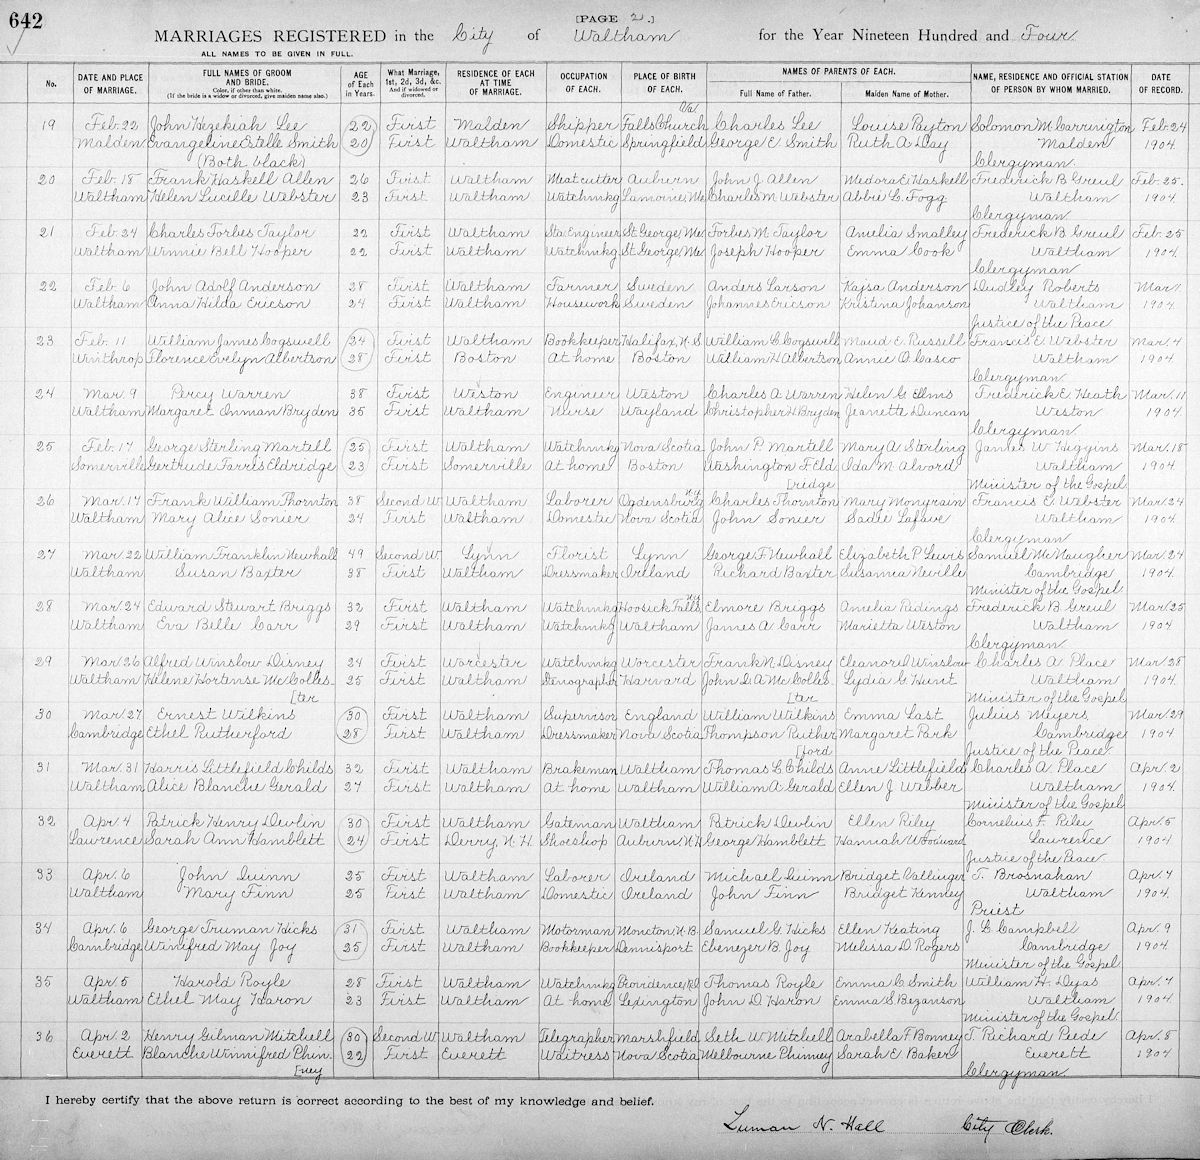 642
[PAGE 2.]
MARRIAGES REGISTERED in the City of Waltham for the Year Nineteen Hundred and Four
ALL NAMES TO BE GIVEN IN FULL.
No. | DATE AND PLACE OF MARRIAGE. | FULL NAMES OF GROOM AND BRIDE. Color, if other than white. (If the bride is a widow or divorced, give maiden name also.) | AGE of Each in Years. | What Marriage, 1st, 2d, 3d, &c. And if widowed or divorced. | RESIDENCE OF EACH AT TIME OF MARRIAGE. | OCCUPATION OF EACH. | PLACE OF BIRTH OF EACH. | NAMES OF PARENTS OF EACH. Full Name of Father. | Maiden Name of Mother. | NAME, RESIDENCE AND OFFICIAL STATION OF PERSON BY WHOM MARRIED. | DATE OF RECORD.
Va.
19 Feb. 22 John Hezekiah Lee 22 First Malden Skipper Falls Church Charles Lee Louise Payton Solomon M. Carrington Feb. 24
Malden Evangeline Estelle Smith 20 First Waltham Domestic Springfield George E. Smith Ruth A. Day Malden 1904.
(Both black) Clergyman.
20 Feb. 18 Frank Haskell Allen 26 First Waltham Meat cutter Auburn John J. Allen Medora E. Haskell Frederick B. Greul Feb. 25.
Waltham Helen Lucille Webster 23 First Waltham Watchmkg Lamoine, Me Charles M. Webster Abbie L. Fogg Waltham 1904.
Clergyman
21 Feb. 24 Charles Forbes Taylor 22 First Waltham Sta. Engineer St. George, Me Forbes M. Taylor Amelia Smalley Frederick B. Greul Feb. 25
Waltham Winnie Bell Hooper 22 First Waltham Watchmkg St. George, Me Joseph Hooper Emma Cook Waltham 1904.
Clergyman
22 Feb. 6 John Adolf Anderson 28 First Waltham Farmer Sweden Anders Larson Kajsa Anderson Dudley Roberts Mar. 1
Waltham Anna Hilda Ericson 24 First Waltham Housework Sweden Johannes Ericson Kristina Johanson Waltham 1904.
Justice of the Peace
23 Feb. 11 William James Cogswell 24 First Waltham Bookkeeper Halifax, N.S. William C. Cogswell Maud E. Russell Francis E. Webster Mar. 4
Winthrop Florence Evelyn Albertson 28 First Boston At home Boston William H. Albertson Annie O. Casco Waltham 1904
Clergyman.
24 Mar. 9 Percy Warren 38 First Weston Engineer Weston Charles A. Warren Helen G. Ellms Frederick E. Heath Mar. 11
Waltham Margaret Onman Bryden 35 First Waltham Nurse Wayland Christopher H. Bryden Jeanette Duncan Weston 1904.
Clergyman.
25 Feb. 17 George Sterling Martell 25 First Waltham Watchmkg Nova Scotia John P. Martell Mary A. Sterling James W. Higgins Mar. 18
Somerville Gertrude Farris Eldridge 23 First Somerville At home Boston Washington F. Eld- Ida M. Alvord Waltham 1904
[ridge Minister of the Gospel
N.Y.
26 Mar. 17 Frank William Thornton 38 Second W Waltham Laborer Ogdensburg Charles Thornton Mary Mongrain Francis E. Webster Mar. 24
Waltham Mary Alice Sonier 24 First Waltham Domestic Nova Scotia John Sonier Sadie Lafave Waltham 1904.
Clergyman
27 Mar. 22 William Franklin Newhall 49 Second W. Lynn Florist Lynn George F. Newhall Elizabeth P. Lewis Samuel McNaugher Mar. 24
Waltham Susan Baxter 38 First Waltham Dressmaker Ireland Richard Baxter Susanna Neville Cambridge 1904.
Minister of the Gospel
N.Y.
28 Mar. 24 Edward Stewart Briggs 32 First Waltham Watchmkg Hoosick Falls Elmore Briggs Amelia Ridings Frederick B. Greul Mar. 25
Waltham Eva Belle Carr 29 First Waltham Watchmkg Waltham James A. Carr Marietta Weston Waltham 1904
Clergyman.
29 Mar. 26 Alfred Winslow Disney 24 First Worcester Watchmkg Worcester Frank N. Disney Eleanor D. Winslow Charles A. Place Mar. 28
Waltham Helene Hortense McColles- 25 First Waltham Stenographer Harvard John D. A. McColles- Lydia G. Hunt Waltham 1904.
[ter [ter Minister of the Gospel
30 Mar. 27 Ernest Wilkins 30 First Waltham Supervisor England William Wilkins Emma Last Julius Meyers Mar. 29
Cambridge Ethel Rutherford 28 First Waltham Dressmaker Nova Scotia Thompson Ruther Margaret Park Cambridge 1904
[ford Justice of the Peace
31 Mar. 31 Harris Littlefield Childs 32 First Waltham Brakeman Waltham Thomas L. Childs Anne Littlefield Charles A. Place Apr. 2
Waltham Alice Blanche Gerald 27 First Waltham At home Waltham William A. Gerald Ellen J. Webber Waltham 1904
Minister of the Gospel
32 Apr. 4 Patrick Henry Devlin 30 First Waltham Gateman Waltham Patrick Devlin Ellen Riley Cornelius F. Riley Apr. 5
Lawrence Sarah Ann Hamblett 24 First Derry, N.H. Shoeshop Auburn, N.H. George Hamblett Hannah Woodward Lawrence 1904
Justice of the Peace
33 Apr. 6 John Quinn 25 First Waltham Laborer Ireland Michael Quinn Bridget Callinger T. Brosnahan Apr. 7
Waltham Mary Finn 25 First Waltham Domestic Ireland John Finn Bridget Kenney Waltham 1904.
Priest
34 Apr. 6 George Truman Hicks 31 First Waltham Motorman Moncton, N.B. Samuel G. Hicks Ellen Keating J. L. Campbell Apr. 9
Cambridge Winifred May Joy 25 First Waltham Bookkeeper Dennisport Ebenezer B. Joy Melissa D. Rogers Cambridge 1904.
Minister of the Gospel
35 Apr. 5 Harold Royle 28 First Waltham Watchmkg Providence, R.I. Thomas Royle Emma C. Smith William H. Dyas Apr. 7
Waltham Ethel May Haron 23 First Waltham At home Lexington John D. Haron Emma S. Bezanson Waltham 1904
Minister of the Gospel
36 Apr. 2 Henry Gilman Mitchell 30 Second W Waltham Telegrapher Marshfield Seth W. Mitchell Arabella F. Bonney T. Richard Peede Apr. 8
Everett Blanche Winnifred Phin- 22 First Everett Waitress Nova Scotia Melbourne Phinney Sarah E. Baker Everett 1904
[ney Clergyman.
I hereby certify that the above return is correct according to the best of my knowledge and belief.
Luman N. Hall City Clerk.